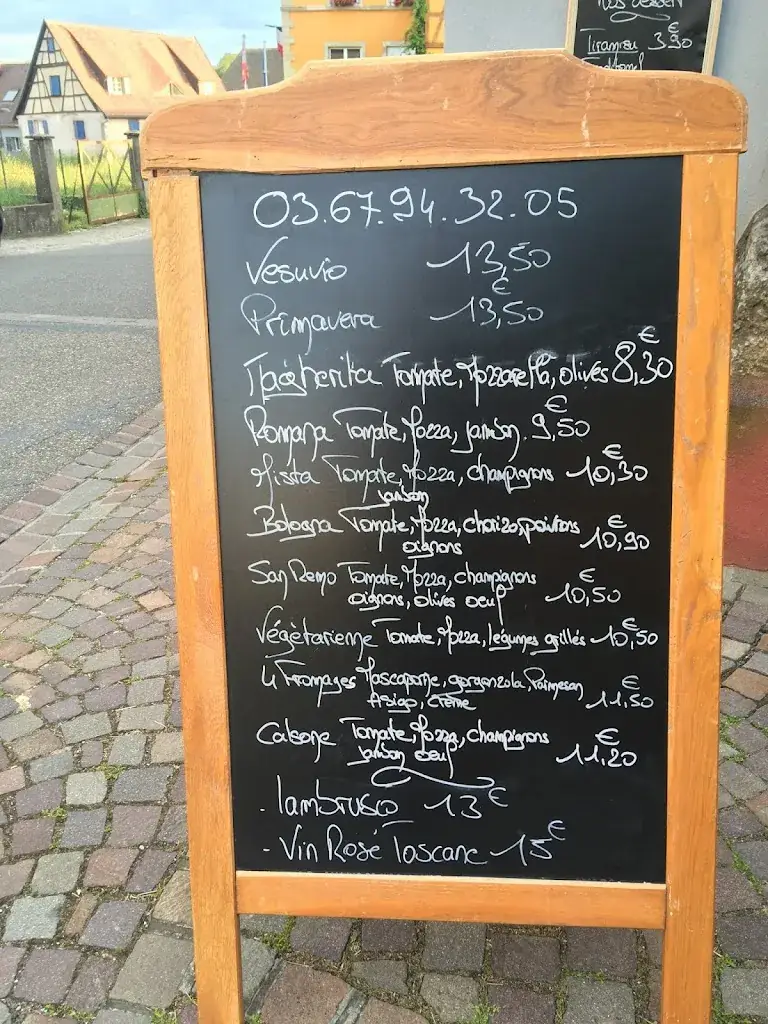 Nos Dessert
Tiramisu 3€90
03.67.94.32.05
Vesuvio 13,50
Primavera 13,50€
Margherita Tomate, Mozzarella, olives 8,30€
Romana Tomate, Mozza, jambon 9,50€
Mista Tomate, Mozza, champignons 10,30€
jambon
Bologna Tomate, Mozza, chorizo, poivrons 10,90€
oignons
San Remo Tomate, Mozza, champignons 10,50€
oignons, olives oeuf
Végètarienne Tomate, Mozza, légumes grillés 10,50€
4 Fromages Mascarpone, gorgonzola, Parmesan 11,50€
Asigo, Crème
Calsone Tomate, Mozza, champignons 11,20€
jambon oeuf
- lambrusco 13€
- Vin Rosé Toscane 15€